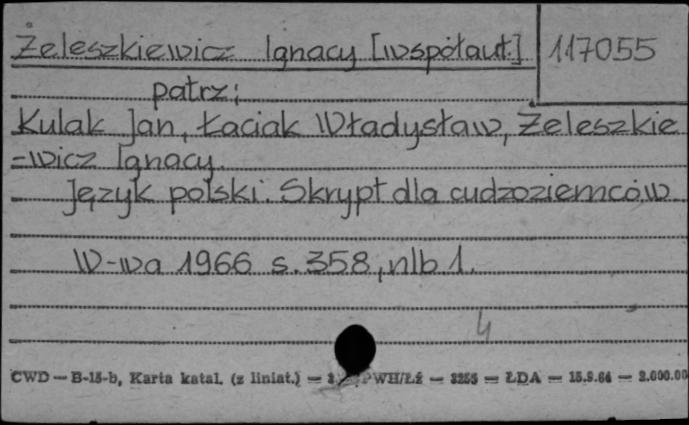 Żeleszkiewicz Ignacy [współaut.] 117055
patrz:
Kulak Jan, Łaciak Władysław, Żeleszkie
-wicz Ignacy.
Język polski. Skrypt dla cudzoziemców
W-wa 1966 s. 358, nlb 1.
4
CWD — B-15-b, Karta katal. (z liniat.) — PWH/Łź — 3255 — ŁDA — 15.9.64 — 2.000.00